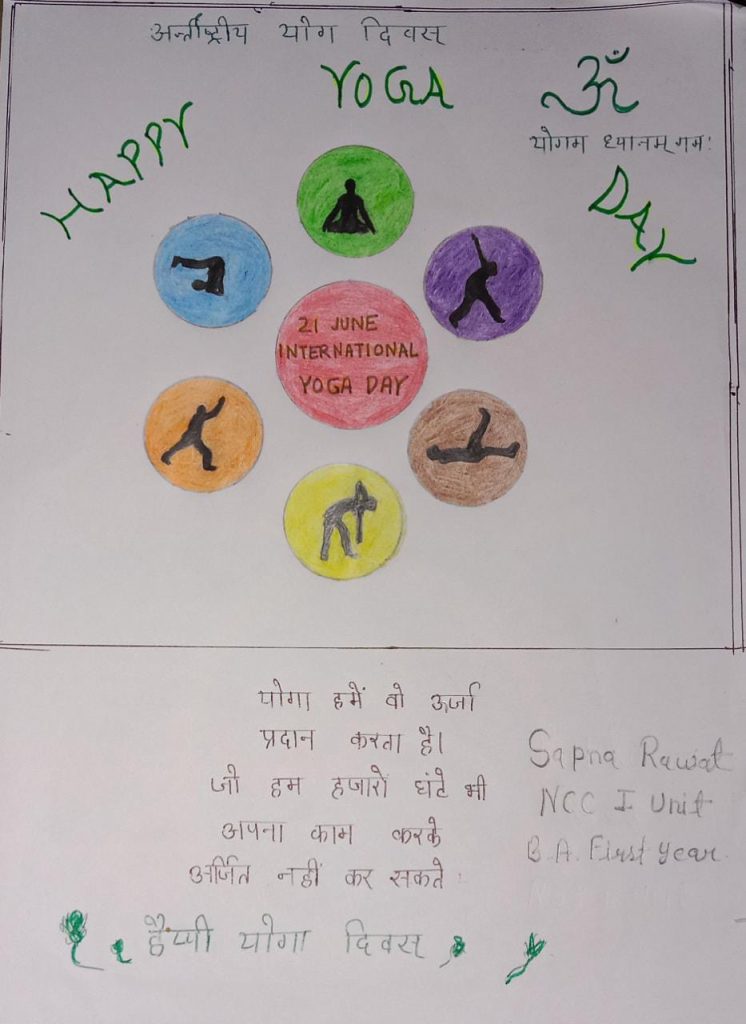 अर्न्तराष्ट्रीय योग दिवस्
HAPPY
YOGA
DAY
ॐ
योगम ध्यानम् नमः
21 JUNE
INTERNATIONAL
YOGA DAY
योगा हमें वो ऊर्जा
प्रदान करता है।
जो हम हजारों घंटे भी
अपना काम करके
अर्जित नहीं कर सकते
Sapna Rawat
NCC I Unit
B.A. First Year
हैप्पी योगा दिवस्